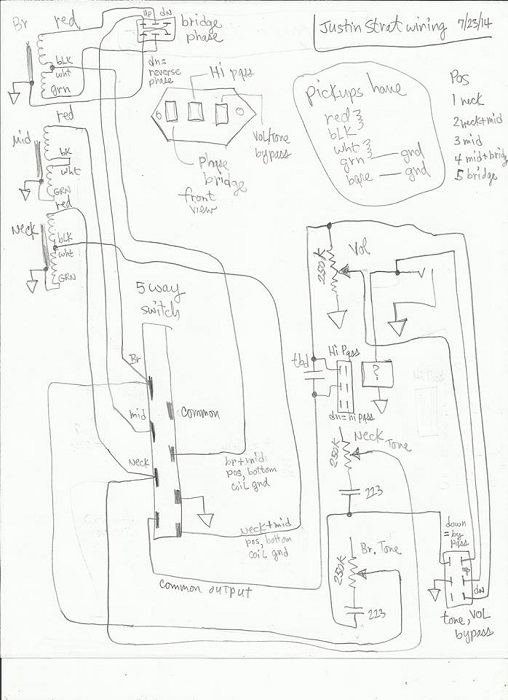 Justin Strat wiring 7/23/14
Br
red
blk
wht
grn
up dn
bridge
phase
dn=
reverse
phase
Hi pass
Vol/Tone
bypass
Phase
bridge
front
view
Pickups have
red
blk
wht
grn — gnd
bare — gnd
Pos
1 neck
2 neck+mid
3 mid
4 mid+bridg
5 bridge
Mid
red
bk
wht
GRN
Neck
red
blk
wht
GRN
5 way
switch
Br
mid
Neck
Common
br+mid
pos, bottom
coil gnd
Neck+mid
pos, bottom
coil gnd
common output
250K
Vol
tbd
Hi Pass
dn=hi pass
?
250K
Neck
Tone
223
Br. Tone
250K
223
down
=by
pass
up
dn
tone, VOL
bypass